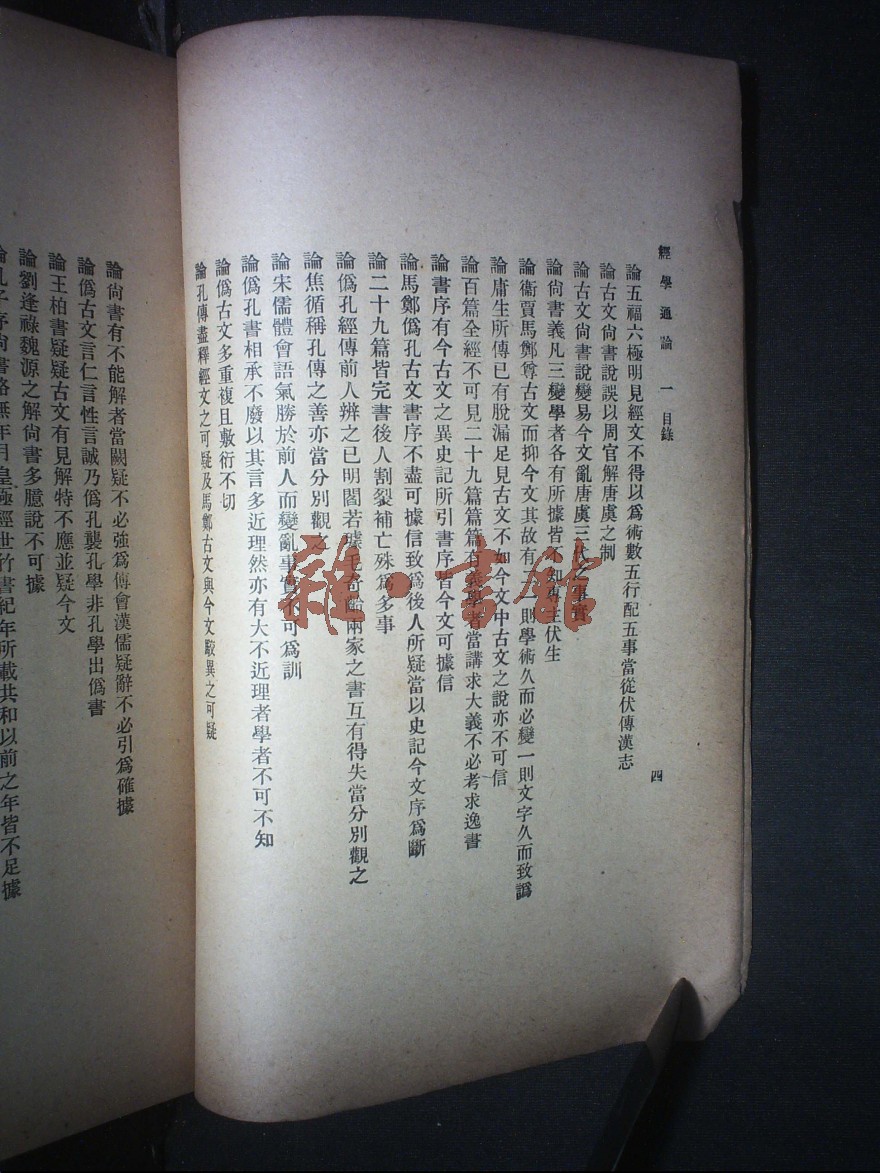 經學通論 一 目錄 四
論五福六極明見經文不得以爲術數五行配五事當從伏傳漢志
論古文尙書說誤以周官解唐虞之制
論古文尙書說變易今文亂唐虞三代之事實
論尙書義凡三變學者各有所據皆不知專主伏生
論衞賈馬鄭尊古文而抑今文其故有二一則學術久而必變一則文字久而致譌
論庸生所傳已有脫漏足見古文不如今文中古文之說亦不可信
論百篇全經不可見二十九篇篇篇有義學者當講求大義不必考求逸書
論書序有今古文之異史記所引書序皆今文可據信
論馬鄭僞孔古文書序不盡可據信致爲後人所疑當以史記今文序爲斷
論二十九篇皆完書後人割裂補亡殊爲多事
論僞孔經傳前人辨之已明閻若璩毛奇齡兩家之書互有得失當分別觀之
論焦循稱孔傳之善亦當分別觀之
論宋儒體會語氣勝於前人而變亂事實不可爲訓
論僞孔書相承不廢以其言多近理然亦有大不近理者學者不可不知
論僞古文多重複且敷衍不切
論孔傳盡釋經文之可疑及馬鄭古文與今文駮異之可疑
論尙書有不能解者當闕疑不必強爲傅會漢儒疑辭不必引爲確據
論僞古文言仁言性言誠乃僞孔襲孔學非孔學出僞書
論王柏書疑疑古文有見解特不應並疑今文
論劉逢祿魏源之解尙書多臆說不可據
論孔子序尙書略無年月皇極經世竹書紀年所載共和以前之年皆不足據
雜·書館